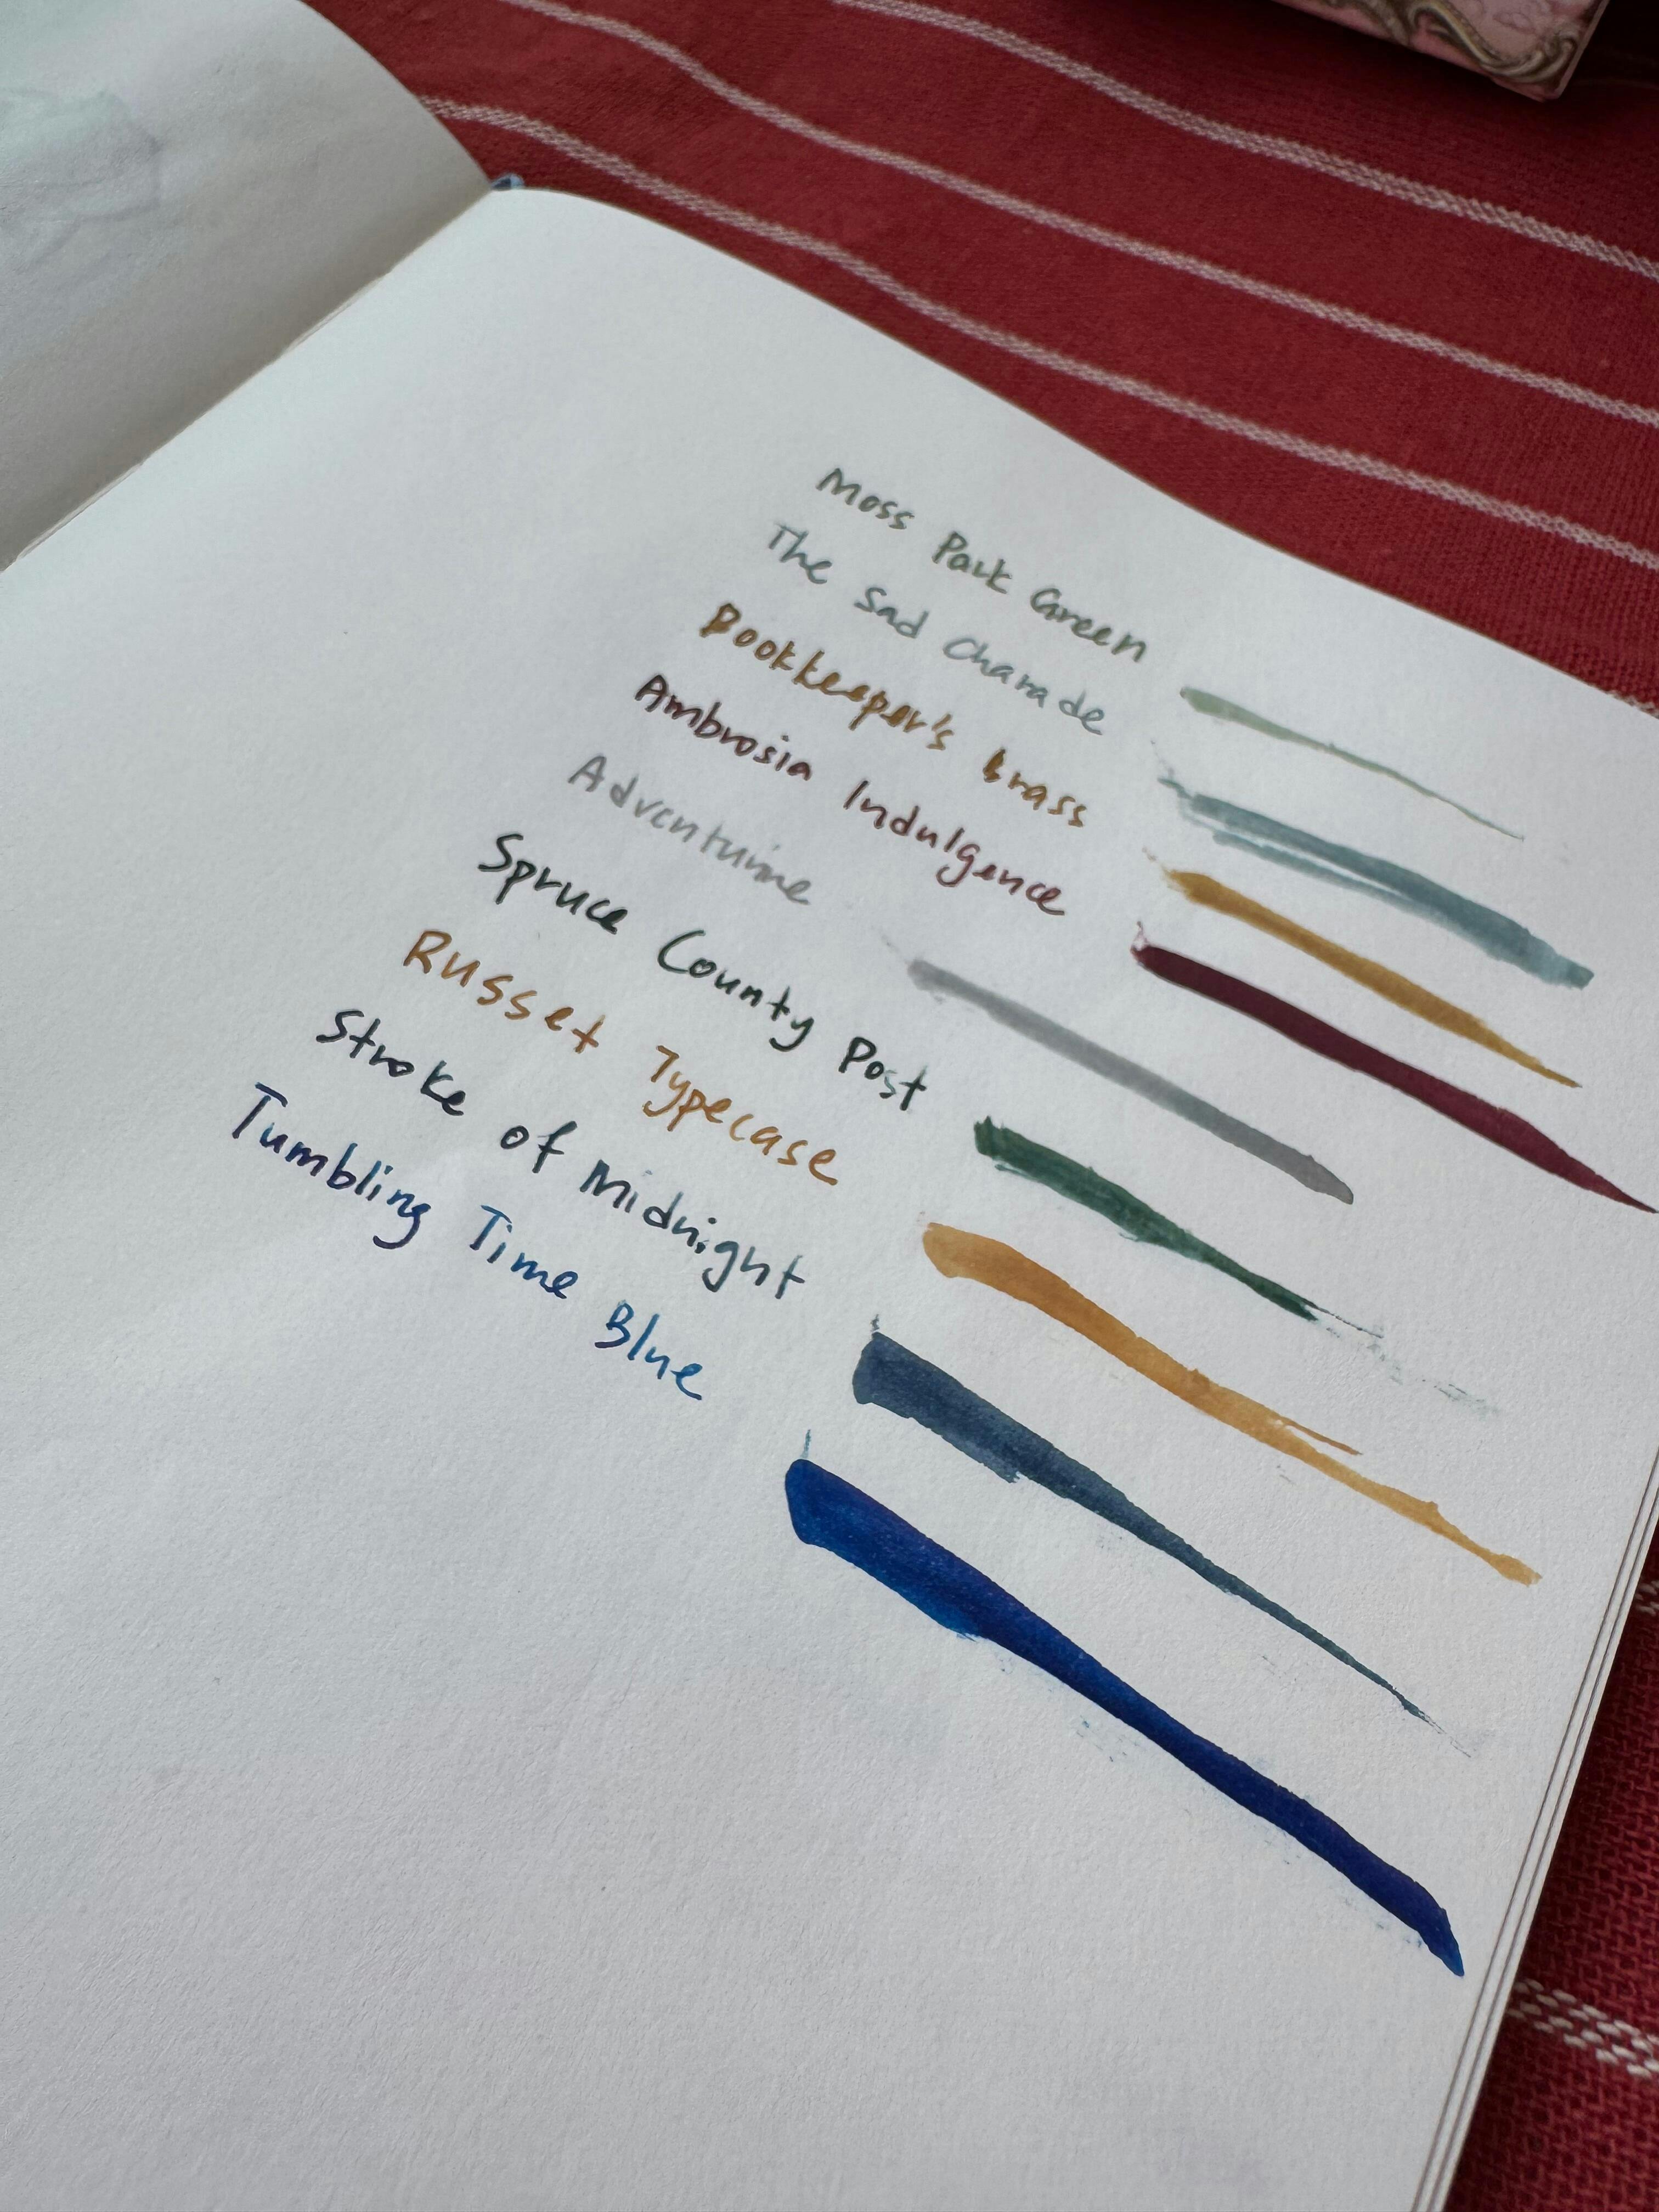 Moss Park Green
The Sad Charade
Bookkeeper's brass
Ambrosia Indulgence
Adventurine
Spruce County Post
Russet Typecase
Stroke of Midnight
Tumbling Time Blue